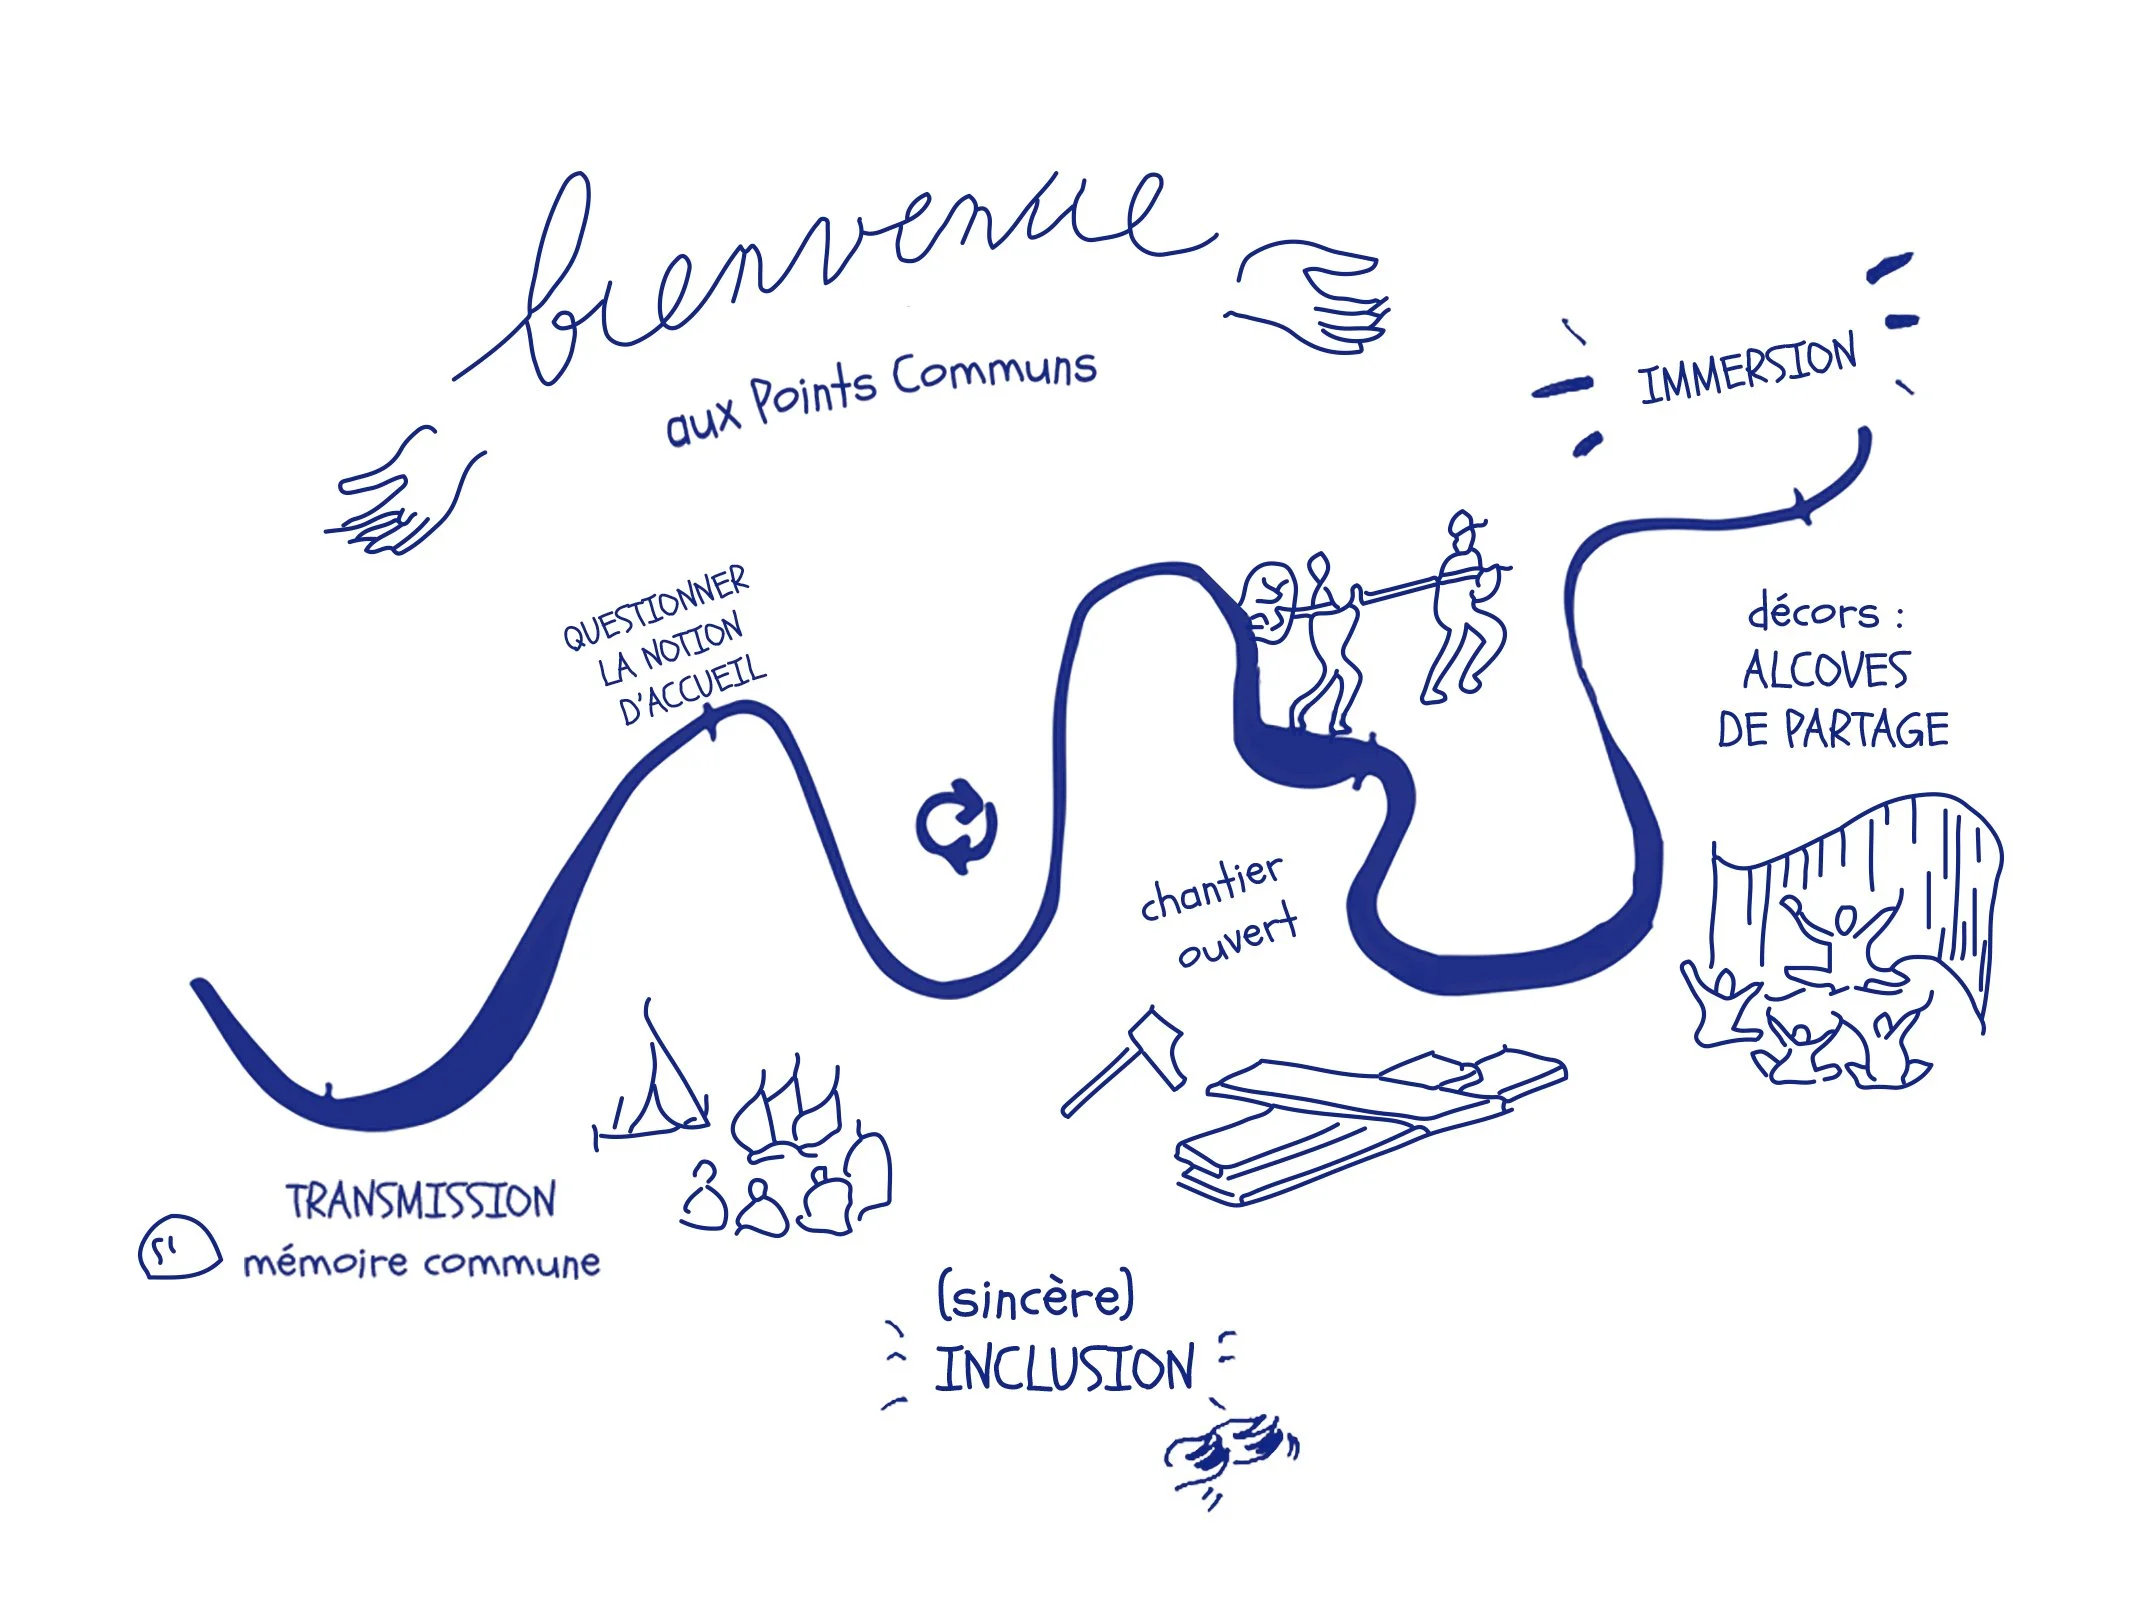 bienvenue
aux Points Communs
IMMERSION
QUESTIONNER
LA NOTION
D'ACCUEIL
décors :
ALCOVES
DE PARTAGE
chantier
ouvert
TRANSMISSION
mémoire commune
(sincère)
INCLUSION